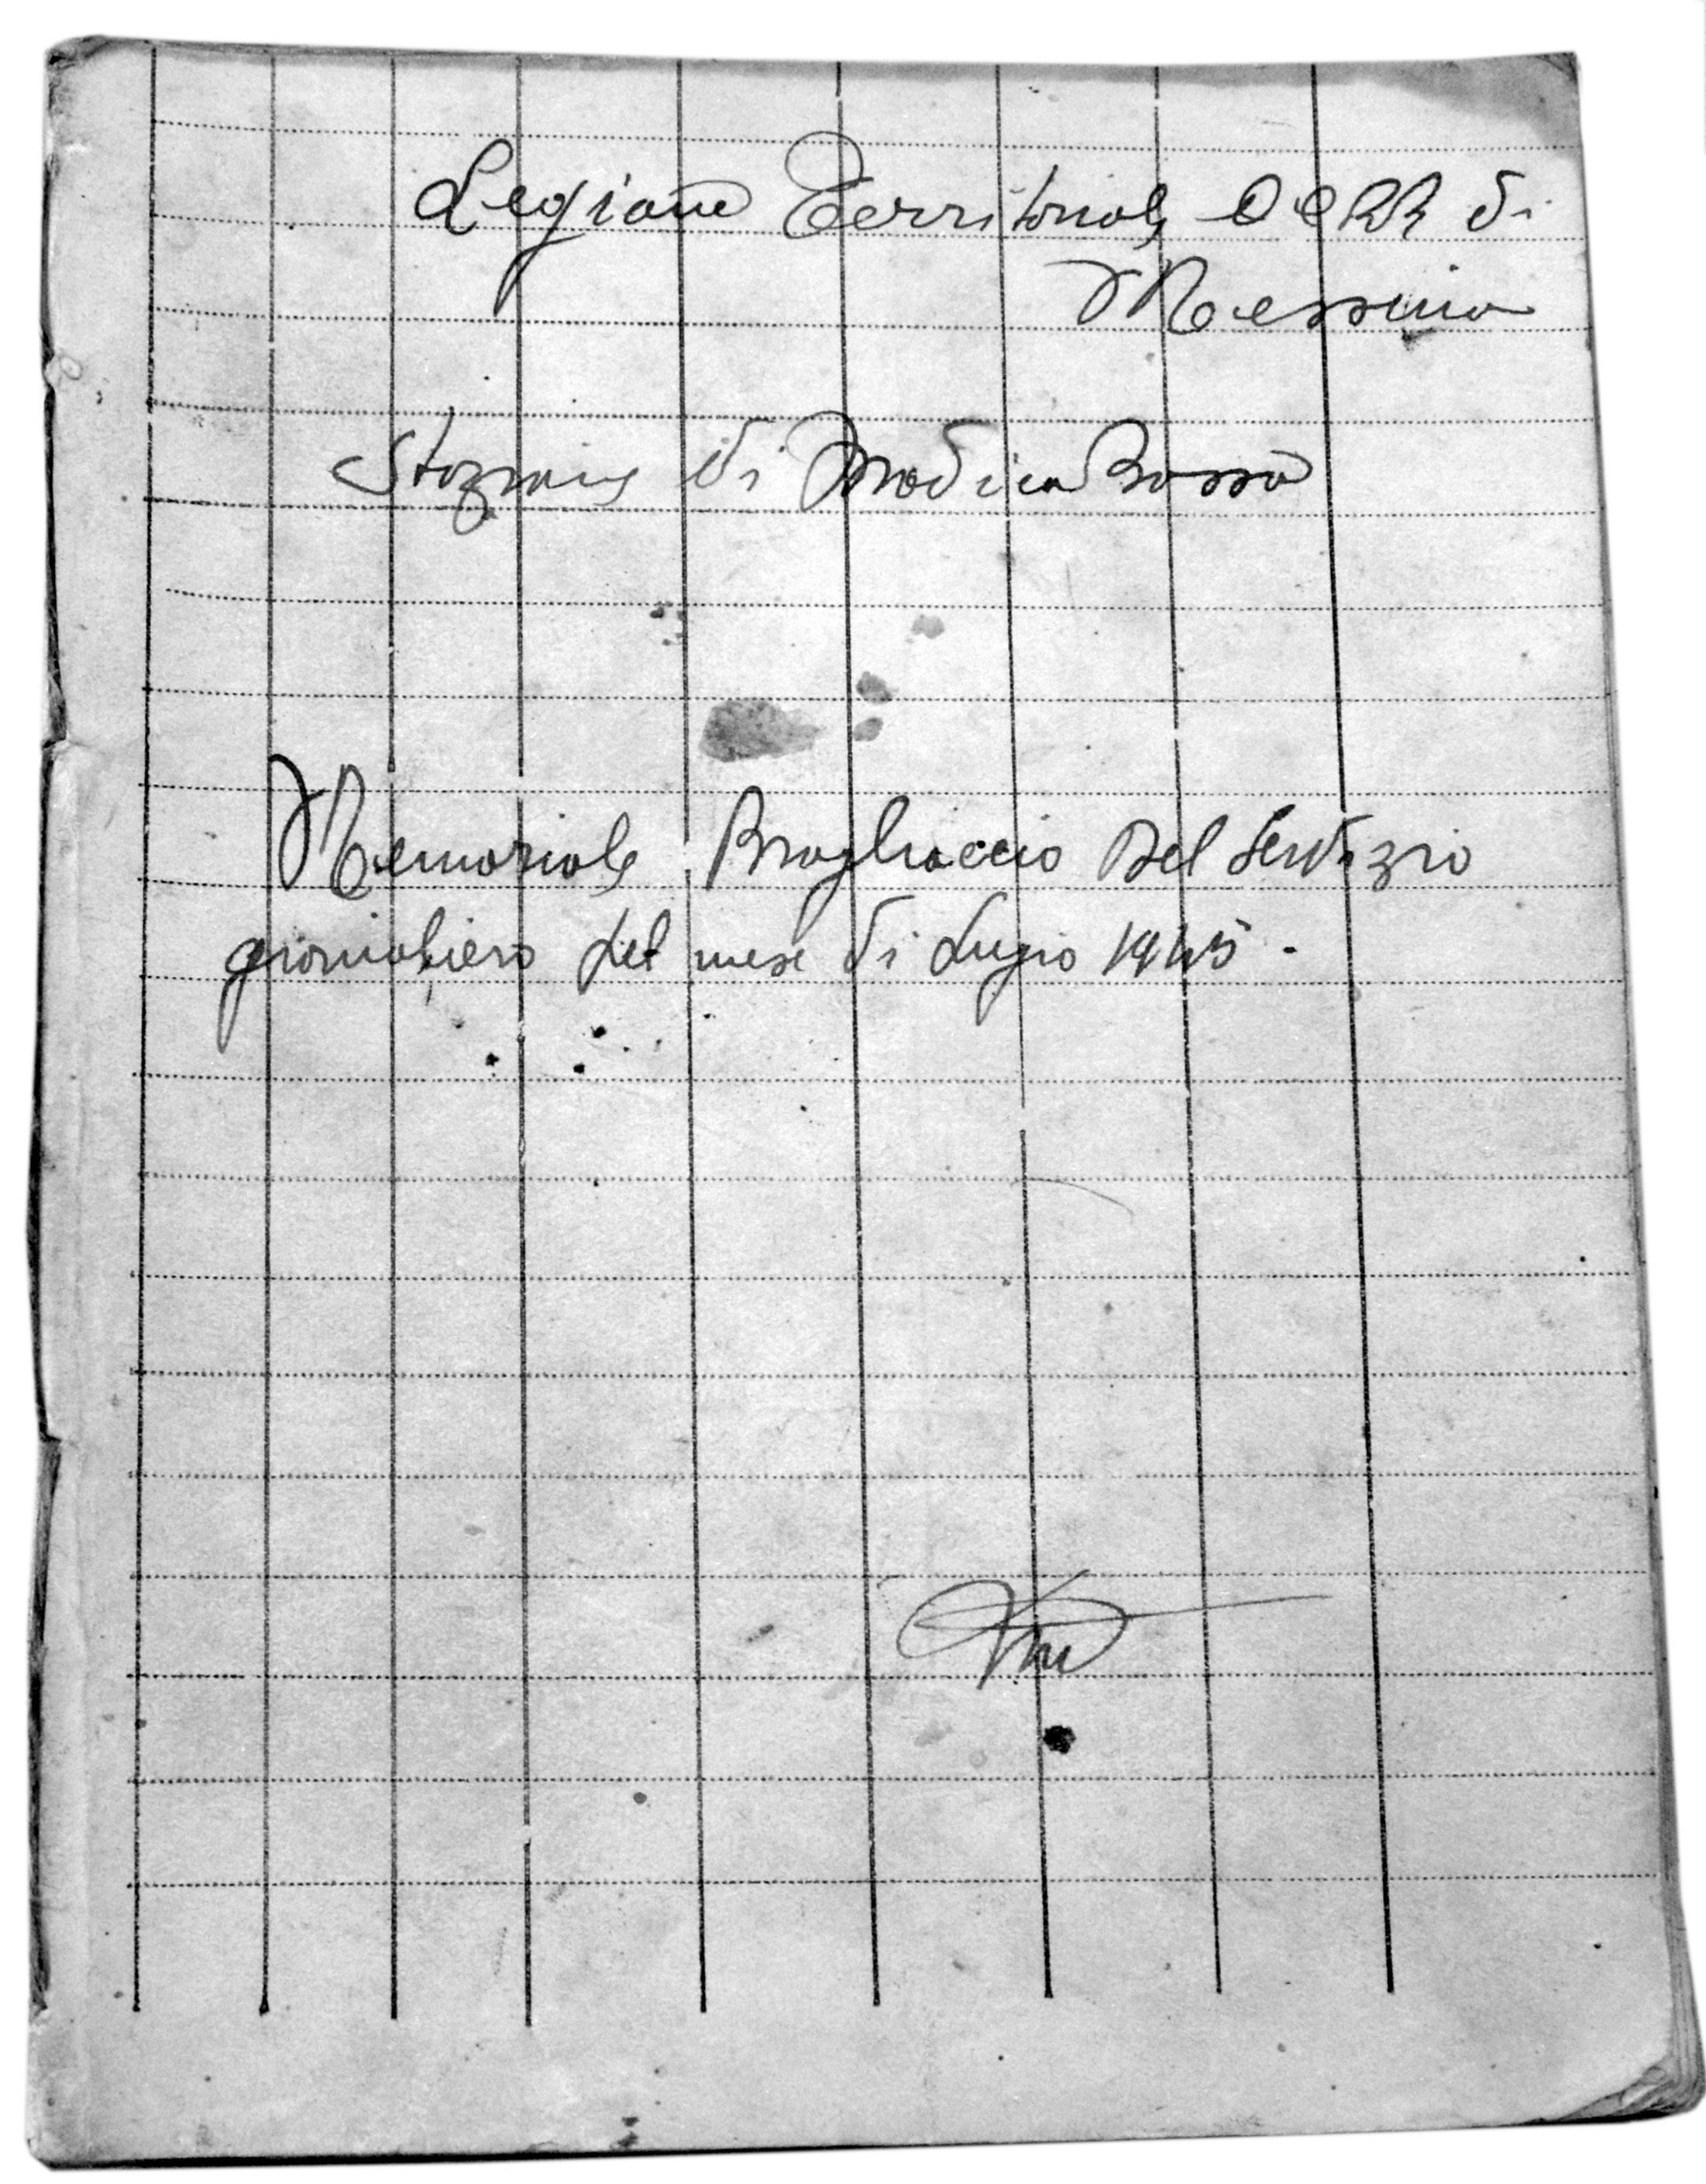 Legione Territoriale CC RR di
Messina
Stazione di Modica Bassa
Memoriale Brogliaccio del Servizio
giornaliero del mese di Lugio 1945 -